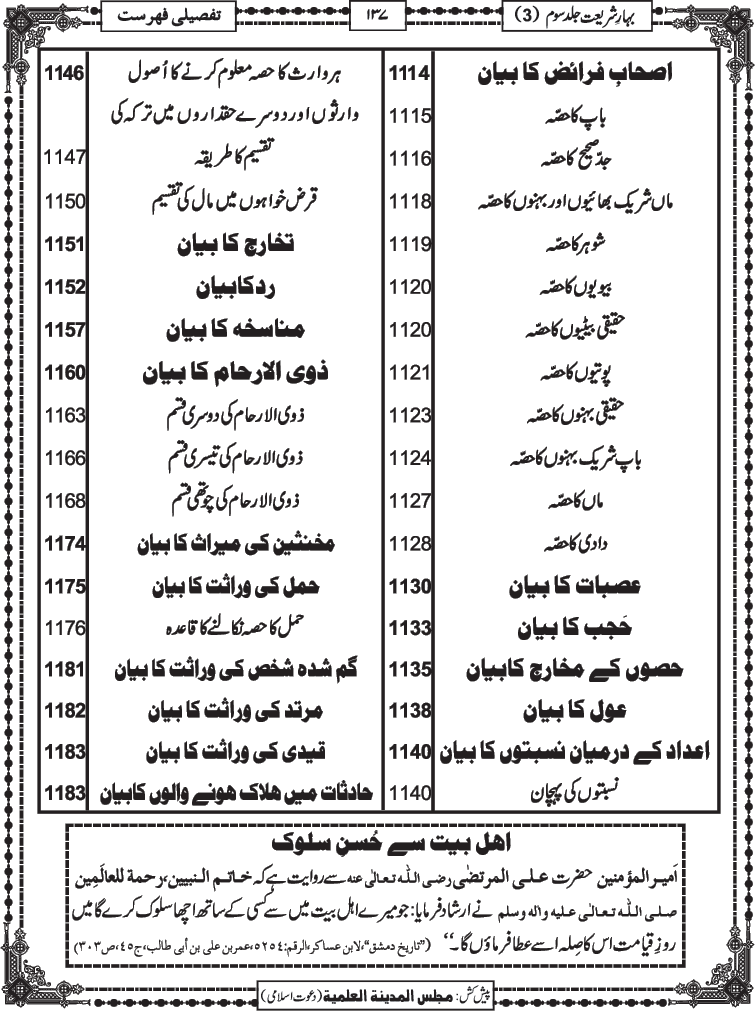 بہارِ شریعت جلد سوم (3)
۱۳۷
تفصیلی فہرست
اصحابِ فرائض کا بیان 1114
باپ کا حصّہ 1115
جدِّ صحیح کا حصّہ 1116
ماں شریک بھائیوں اور بہنوں کا حصّہ 1118
شوہر کا حصّہ 1119
بیویوں کا حصّہ 1120
حقیقی بیٹیوں کا حصّہ 1120
پوتیوں کا حصّہ 1121
حقیقی بہنوں کا حصّہ 1123
باپ شریک بہنوں کا حصّہ 1124
ماں کا حصّہ 1127
دادی کا حصّہ 1128
عصبات کا بیان 1130
حَجب کا بیان 1133
حصوں کے مخارج کابیان 1135
عول کا بیان 1138
اعداد کے درمیان نسبتوں کا بیان 1140
نسبتوں کی پہچان 1140
ہر وارث کا حصہ معلوم کرنے کا اُصول 1146
وارثوں اور دوسرے حقداروں میں ترکہ کی
تقسیم کا طریقہ 1147
قرض خواہوں میں مال کی تقسیم 1150
تخارج کا بیان 1151
ردکابیان 1152
مناسخہ کا بیان 1157
ذوی الارحام کا بیان 1160
ذوی الارحام کی دوسری قسم 1163
ذوی الارحام کی تیسری قسم 1166
ذوی الارحام کی چوتھی قسم 1168
مخنثین کی میراث کا بیان 1174
حمل کی وراثت کا بیان 1175
حمل کا حصہ نکالنے کا قاعدہ 1176
گم شدہ شخص کی وراثت کا بیان 1181
مرتد کی وراثت کا بیان 1182
قیدی کی وراثت کا بیان 1183
حادثات میں ھلاک ھونے والوں کابیان 1183
اھل بیت سے حُسنِ سلوک
اَمیر المؤمنین حضرت علی المرتضٰی رضی اللہ تعالٰی عنہ سے روایت ہے کہ خاتم النبیین، رحمۃ للعالَمین
صلی اللہ تعالٰی علیہ والہ وسلم نے ارشاد فرمایا: جو میرے اہل بیت میں سے کسی کے ساتھ اچھا سلوک کرے گا میں
روزِ قیامت اس کا صِلہ اسے عطا فرماؤں گا۔‘‘ (’’تاریخ دمشق‘‘، لابن عساکر، الرقم: ۵۲۵۴، عمر بن علی بن أبی طالب، ج۴۵، ص۳۰۳)
پیش کش: مجلس المدینۃ العلمیۃ (دعوت اسلامی)